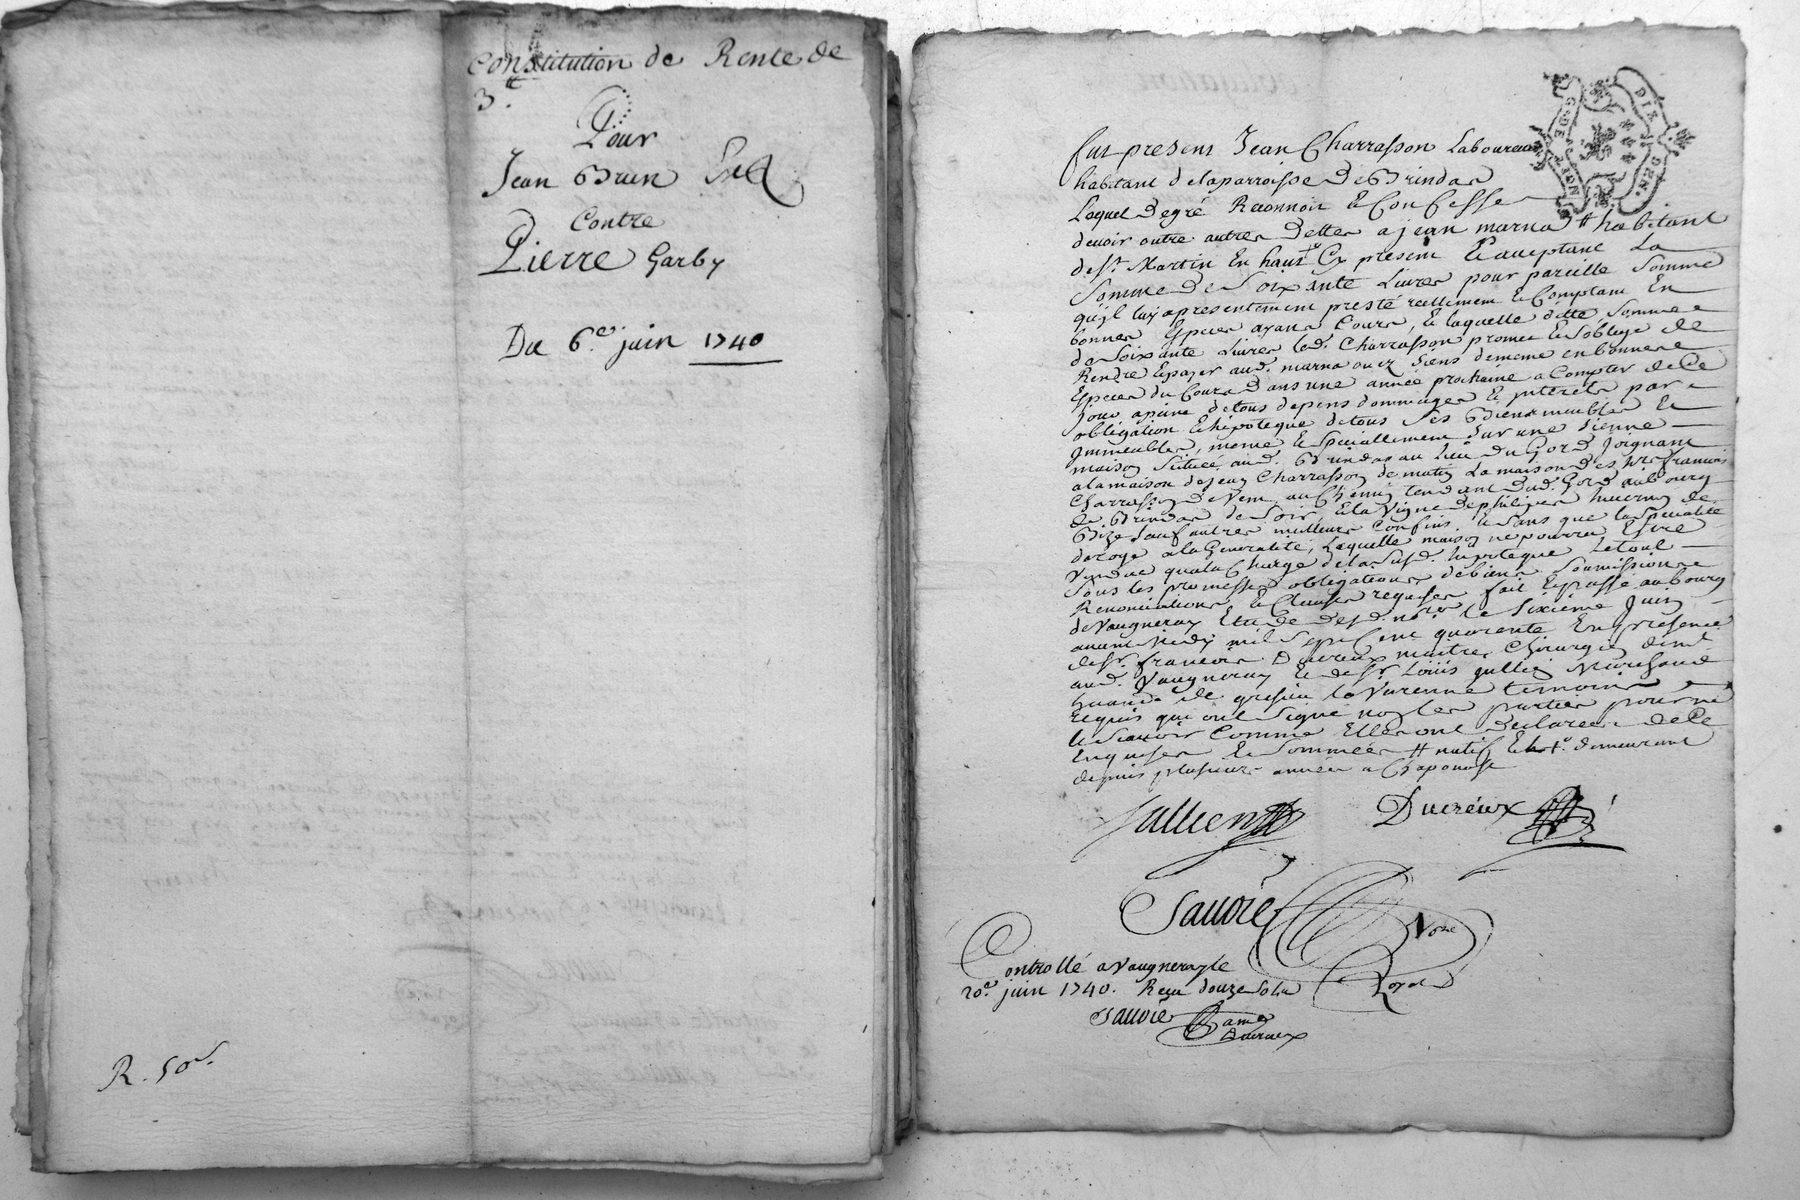 Constitution de Rente de
3.tt
Pour
Jean Brun
Contre
Pierre Garby
Du 6.e juin 1740
R. 50s.
fut present Jean Charrasson Laboureur
habitant de la parroisse de Brindas
Lequel de gré Reconnoit & Confesse
devoir outre autres dettes a jean marna # habitant
de St. Martin En haut Cy present & acceptant La
Somme de Soixante Livres pour pareille Somme
qu'il luy a presentement presté réellement & Comptant En
bonnes Especes ayans Cours, & laquelle ditte Somme
de Soixante Livres led. Charrasson promet & s'oblige de
Rendre & payer aud. marna ou ez Siens de meme en bonnes
Especes du Cours dans une année prochaine a Compter de Ce
jour a peine de tous depens dommages & interets par
obligation & hipoteque de tous Ses Biens meubles &
Immeubles, meme & Speciallement Sur une Sienne
maison Scituée aud. Brindas au lieu du Gord Joignant
a la maison de jean Charrasson de matin La maison des hrs francois
Charrasson de Vent au Chemin tendant dud. Gord au bourg
de Brindas de Soir, & la Vigne de philipes de
Bize Sauf autres meilleurs Confins. & Sans que la Specialité
deroge a la Generalité, Laquelle maison ne pourra Estre
Vendue qu'a la Charge de la Susd. hipoteque Le tout
Sous les promesses obligations de biens Soumissions
Renonciations & Clauses requises fait & passé au bourg
de Vaugneray Etude des d. nore le Sixième Juin
avant Midy mil Sept Cent quarente En presence
de Sr. francois Ducreux maitre Chirurgien demt
aud. Vaugneray & de Sr. Louis jullien Marchand
de la Varenne temoins
requis qui ont Signé non les parties pour ne
le Scavoir Comme Elles ont declaré de Ce
Enquises & Sommées # natif demeurant
depuis plusieurs années a Chaponost
Jullien
Ducreux
Sauvie
Nore
Royal
Controllé a Vaugneray le
20.e juin 1740. Reçu douze Sols
Sauvie
Ducreux